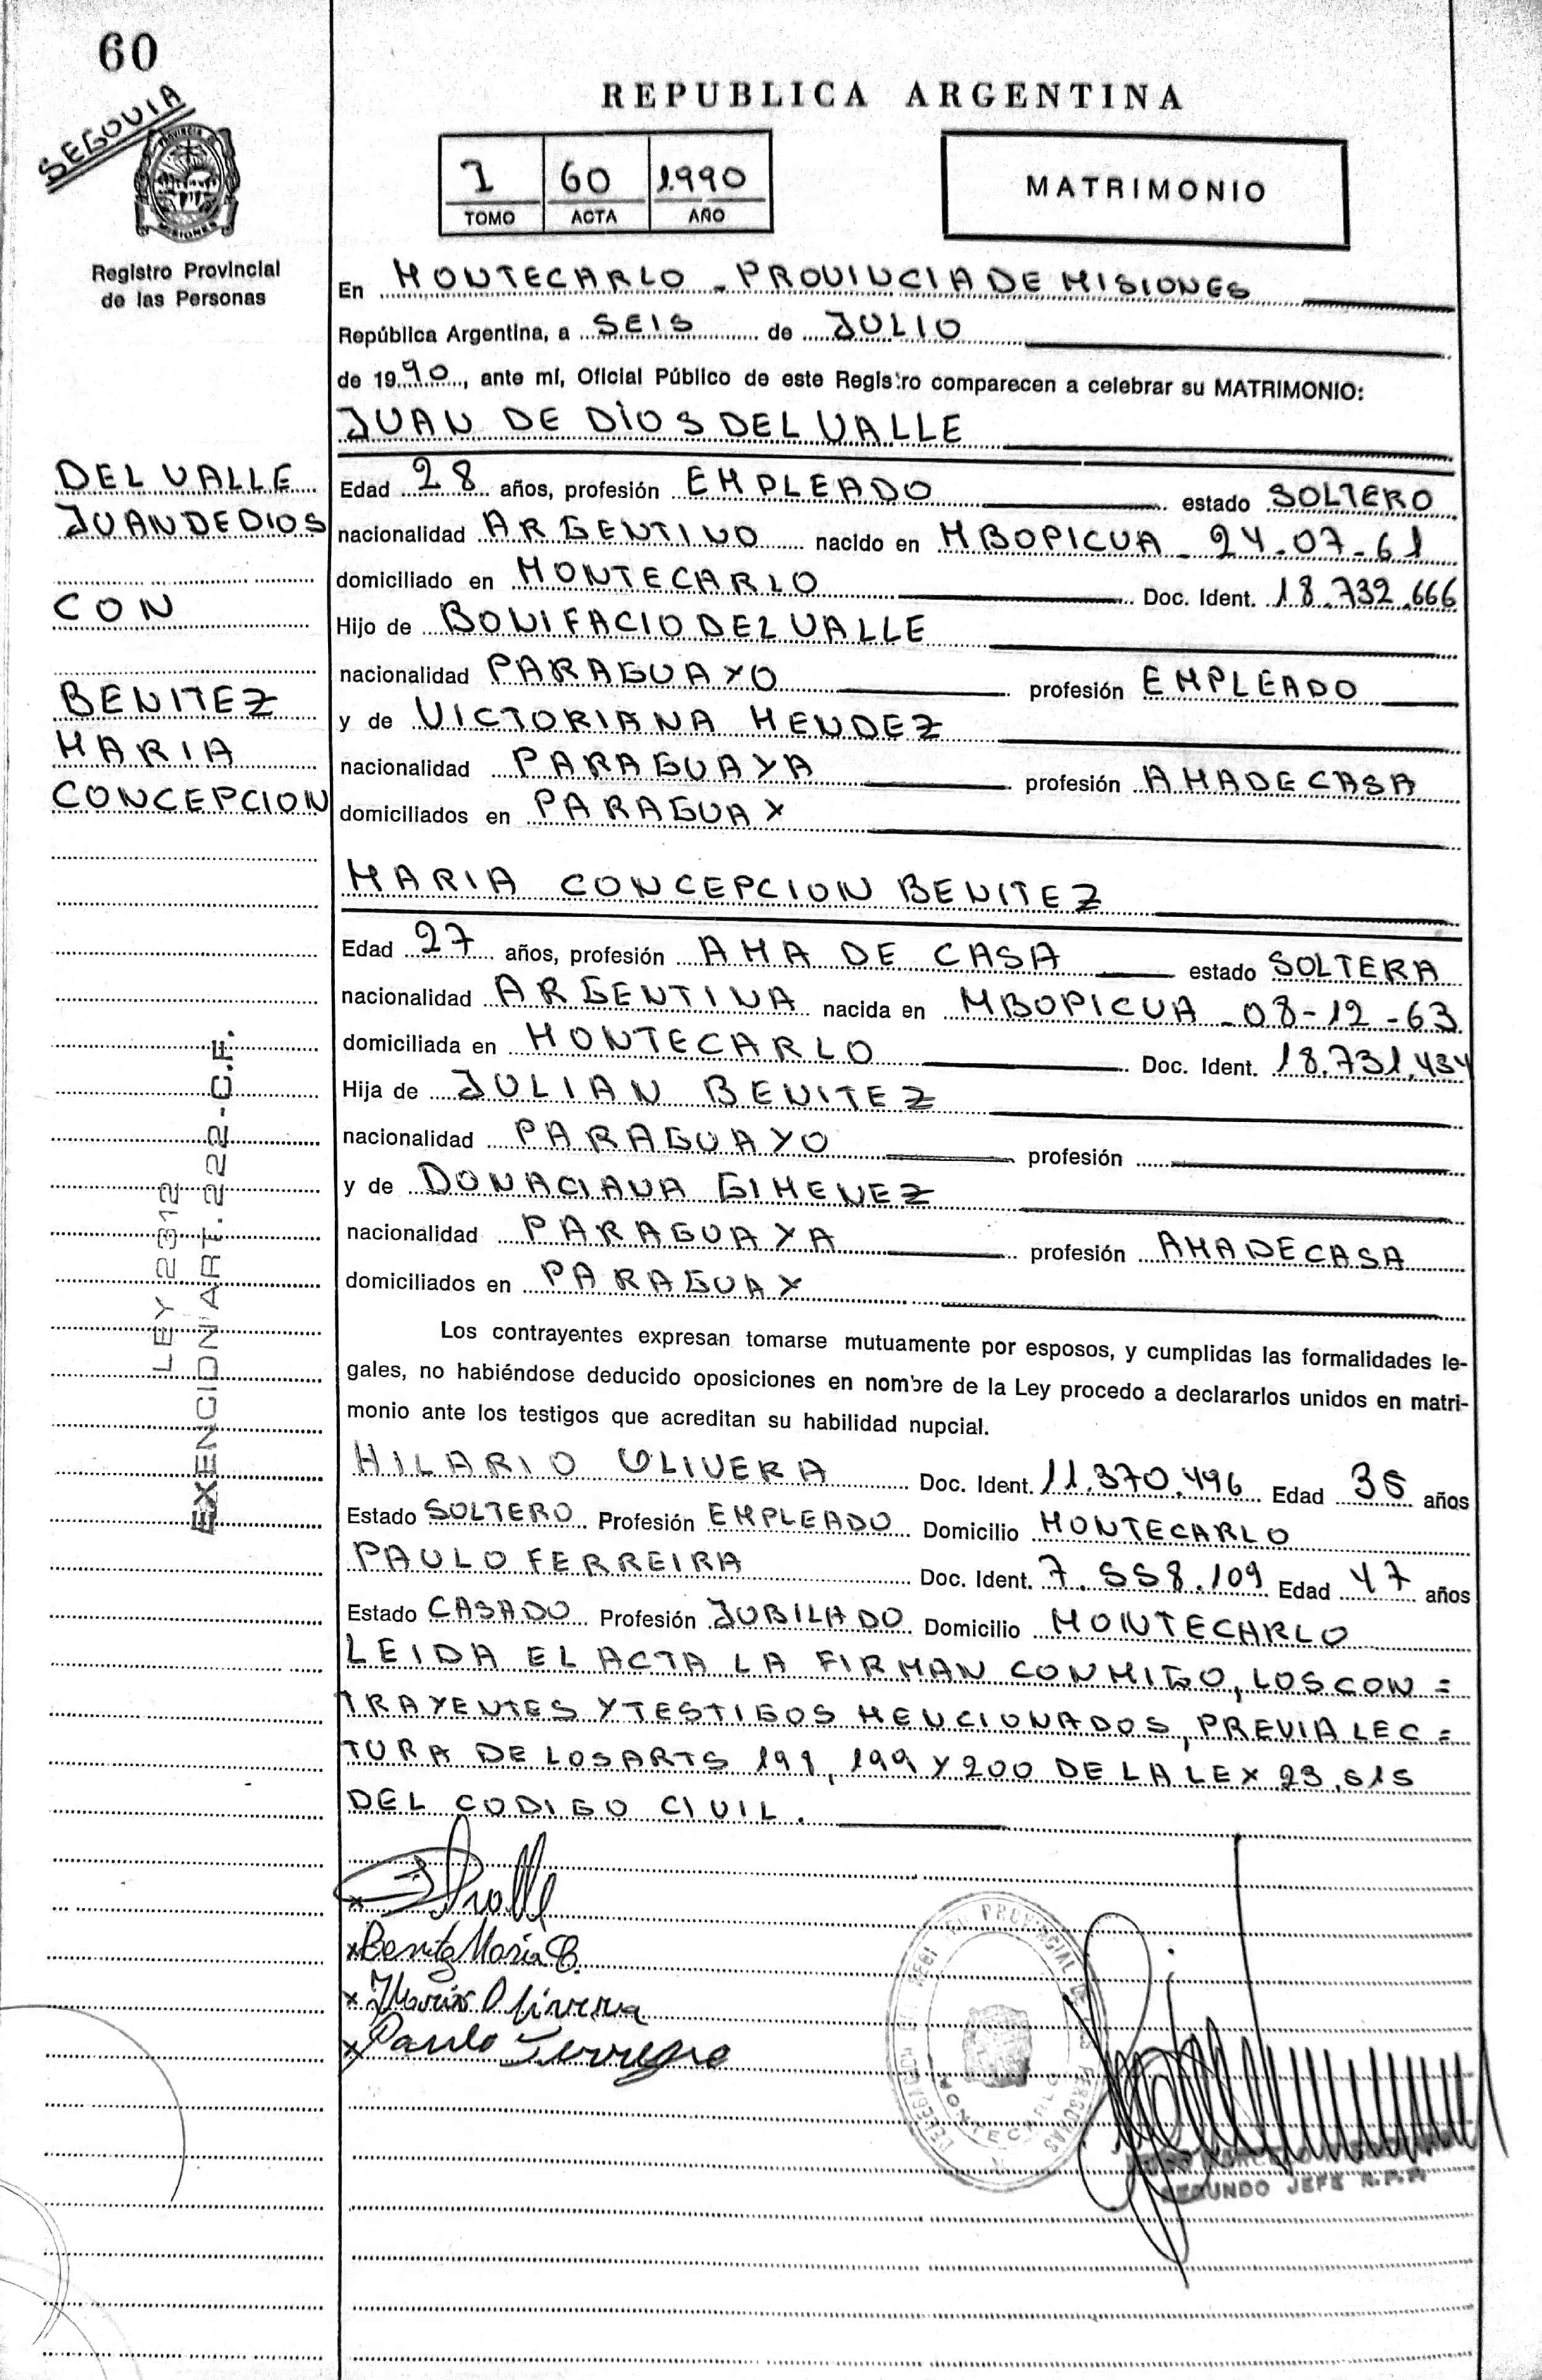 60
SEGOVIA
PROVINCIA DE
MISIONES
Registro Provincial
de las Personas
REPUBLICA ARGENTINA
1 60 1.990
TOMO ACTA AÑO
MATRIMONIO
En MONTECARLO - PROVINCIA DE MISIONES
República Argentina, a SEIS de JULIO
de 1990, ante mí, Oficial Público de este Registro comparecen a celebrar su MATRIMONIO:
JUAN DE DIOS DEL VALLE
DEL VALLE
JUAN DE DIOS
CON
BENITEZ
MARIA
CONCEPCION
Edad 28 años, profesión EMPLEADO estado SOLTERO
nacionalidad ARGENTINO nacido en MBOPICUA - 24-07-61
domiciliado en MONTECARLO Doc. Ident. 18.732.666
Hijo de BONIFACIO DEL VALLE
nacionalidad PARAGUAYO profesión EMPLEADO
y de VICTORIANA MENDEZ
nacionalidad PARAGUAYA profesión AMA DE CASA
domiciliados en PARAGUAY
MARIA CONCEPCION BENITEZ
Edad 27 años, profesión AMA DE CASA estado SOLTERA
nacionalidad ARGENTINA nacida en MBOPICUA - 08-12-63
domiciliada en MONTECARLO Doc. Ident. 18.731.434
Hija de JULIAN BENITEZ
nacionalidad PARAGUAYO profesión
y de DONACIANA GIMENEZ
nacionalidad PARAGUAYA profesión AMA DE CASA
domiciliados en PARAGUAY
LEY 2312
EXENCION ART. 222-C.F.
Los contrayentes expresan tomarse mutuamente por esposos, y cumplidas las formalidades le-
gales, no habiéndose deducido oposiciones en nombre de la Ley procedo a declararlos unidos en matri-
monio ante los testigos que acreditan su habilidad nupcial.
HILARIO OLIVERA Doc. Ident. 11.370.496 Edad 35 años
Estado SOLTERO Profesión EMPLEADO Domicilio MONTECARLO
PAULO FERREIRA Doc. Ident. 7.558.109 Edad 47 años
Estado CASADO Profesión JUBILADO Domicilio MONTECARLO
LEIDA EL ACTA LA FIRMAN CONMIGO, LOS CON=
TRAYENTES Y TESTIGOS MENCIONADOS, PREVIA LEC=
TURA DE LOS ARTS 198, 199 Y 200 DE LA LEY 23.515
DEL CODIGO CIVIL.
x
x Benitez Maria C.
x Olivera
x Paulo Ferreira
PROVINCIAL DE LAS PERSONAS
MONTECARLO
SEGUNDO JEFE R.P.P.